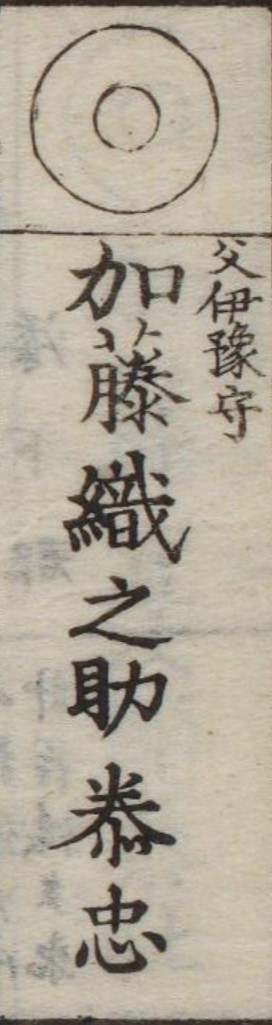 父伊豫守
加藤織之助泰忠